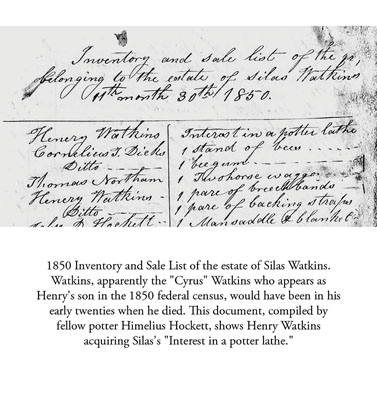 Inventory and sale list of the
belonging to the estate of Silas Watkins
11th month 30th 1850.
Henery Watkins Interest in a potter lathe
Cornelius J. Dicks 1 stand of bees
Ditto 1 bee gum
Thomas Northam 1 Two horse waggo
Henery Watkins 1 pare of breech bands
Ditto 1 pare of backing straps
Hockett 1 Mansaddle & blanket
1850 Inventory and Sale List of the estate of Silas Watkins.
Watkins, apparently the "Cyrus" Watkins who appears as
Henry's son in the 1850 federal census, would have been in his
early twenties when he died. This document, compiled by
fellow potter Himelius Hockett, shows Henry Watkins
acquiring Silas's "Interest in a potter lathe."